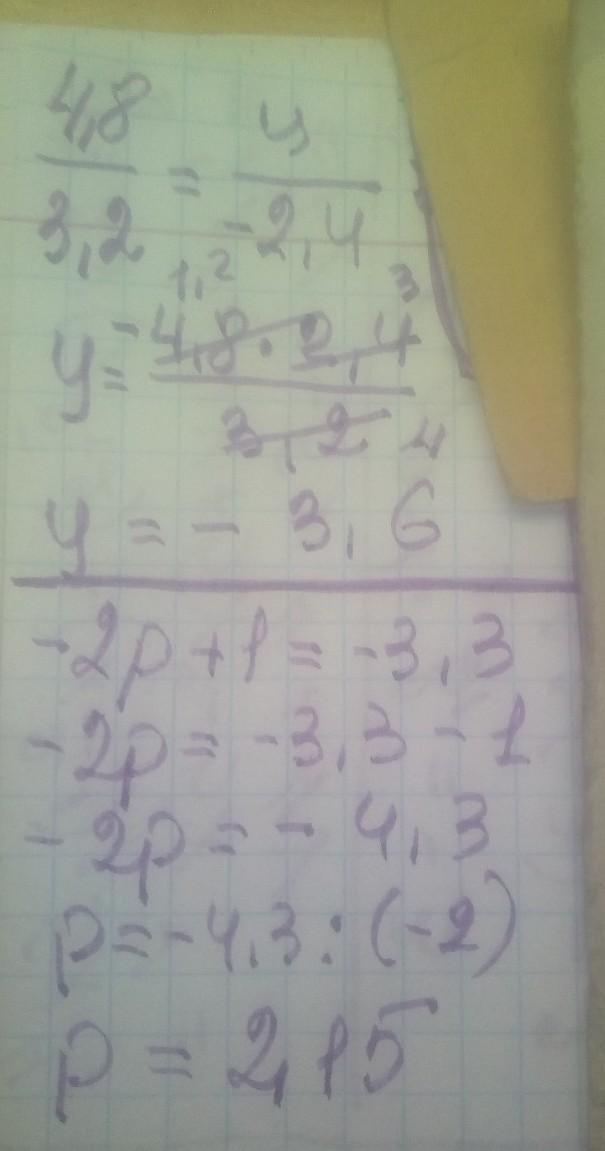 4,8 / 3,2 = y / -2,4
1,2 3
y = - 4,8 · 2,4 / 3,2 4
y = - 3,6
-2p + 1 = -3,3
-2p = -3,3 - 1
-2p = - 4,3
p = -4,3 : (-2)
p = 2,15